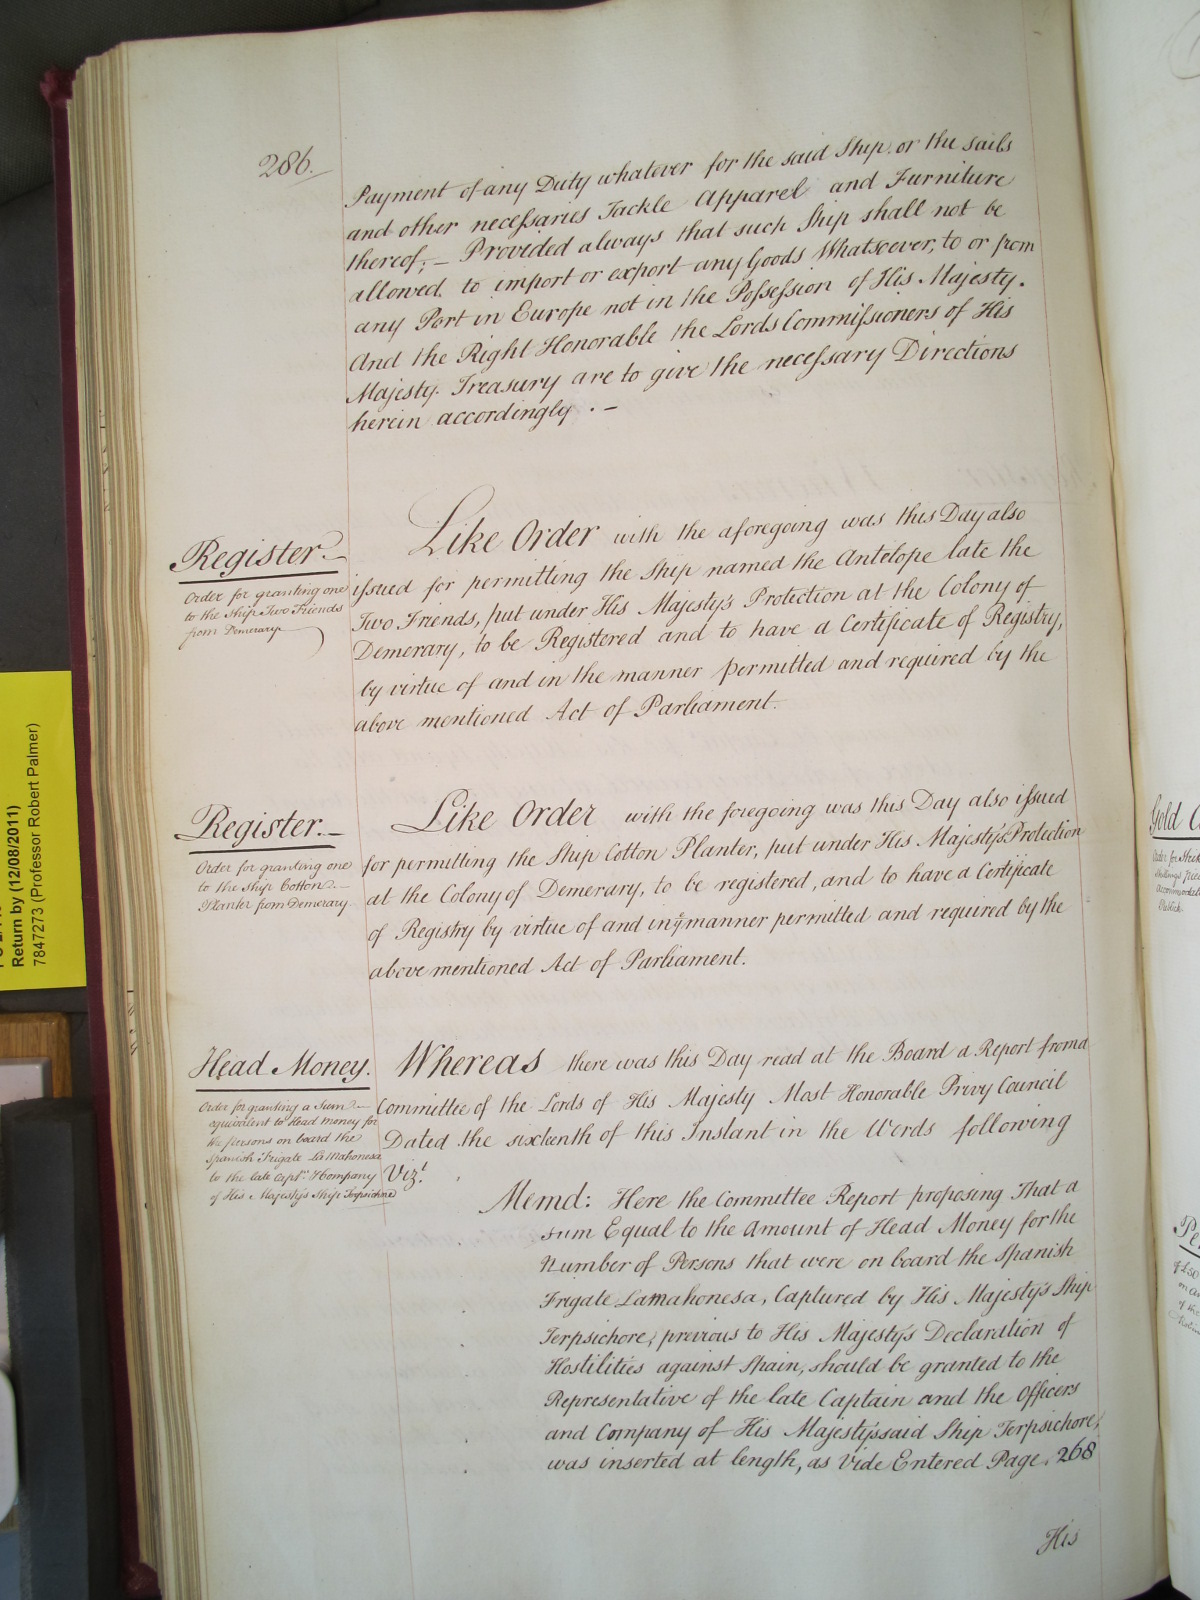 286.
Payment of any Duty whatever for the said Ship or the sails
and other necessaries Tackle Apparel and Furniture
thereof; — Provided always that such Ship shall not be
allowed to import or export any Goods Whatsoever, to or from
any Port in Europe not in the Possession of His Majesty.
And the Right Honorable the Lords Commissioners of His
Majesty Treasury are to give the necessary Directions
herein accordingly . —
Register.
Order for granting one
to the Ship Two Friends
from Demerary
Like Order with the aforegoing was this Day also
issued for permitting the Ship named the Antelope late the
Two Friends, put under His Majesty's Protection at the Colony of
Demerary, to be Registered and to have a Certificate of Registry,
by virtue of and in the manner permitted and required by the
above mentioned Act of Parliament.
Register. —
Order for granting one
to the Ship Cotton
Planter from Demerary
Like Order with the foregoing was this Day also issued
for permitting the Ship Cotton Planter, put under His Majesty's Protection
at the Colony of Demerary, to be registered, and to have a Certificate
of Registry by virtue of and in ye manner permitted and required by the
above mentioned Act of Parliament.
Head Money.
Order for granting a Sum
equivalent to Head money for
the persons on board the
Spanish Frigate La Mahonesa
to the late Captn. & Company
of His Majesty's Ship Terpsichore
Whereas there was this Day read at the Board a Report from a
Committee of the Lords of His Majesty Most Honorable Privy Council
Dated the sixteenth of this Instant in the Words following
Vizt.
Memd: Here the Committee Report proposing That a
sum Equal to the Amount of Head Money for the
Number of Persons that were on board the Spanish
Frigate Lamahonesa, Captured by His Majesty's Ship
Terpsichore, previous to His Majesty's Declaration of
Hostilities against Spain, should be granted to the
Representative of the late Captain and the Officers
and Company of His Majesty's said Ship Terpsichore,
was inserted at length, as Vide Entered Page, 268
His
Return by (12/08/2011)
7847273 (Professor Robert Palmer)
Gold